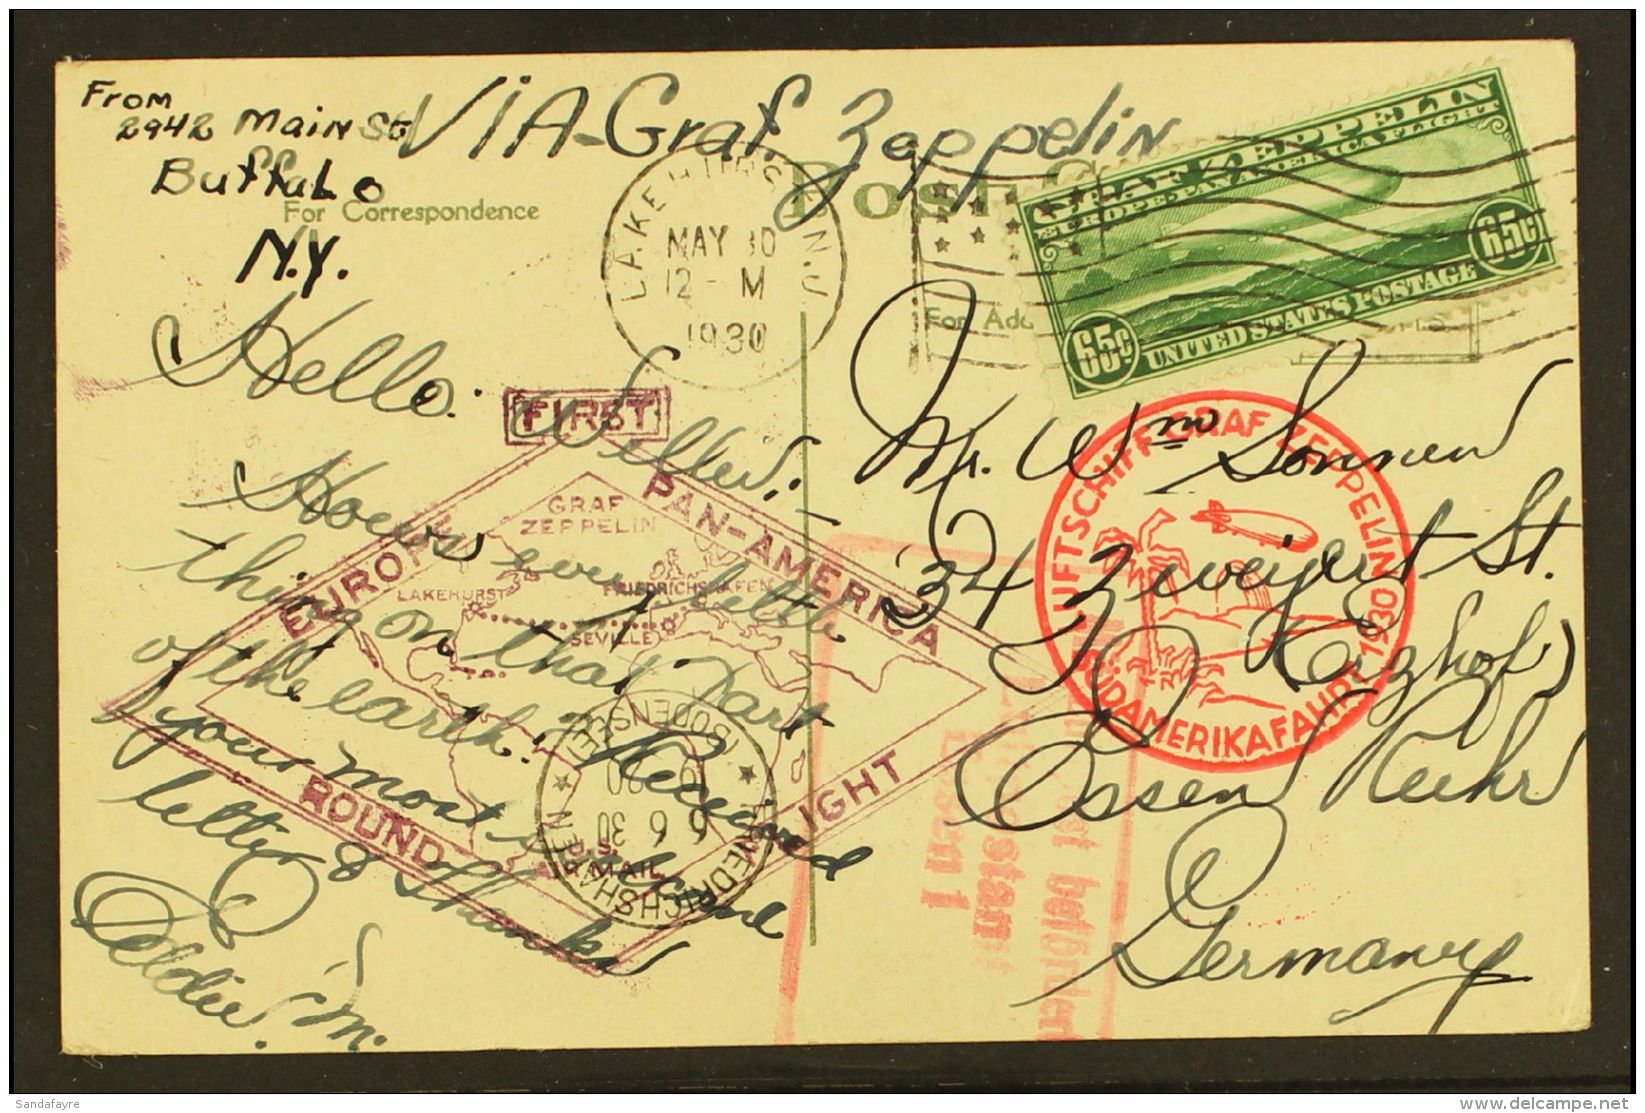 From
2942 Main St
Buffalo
N.Y.
VIA-Graf Zeppelin
Post
For Correspondence
LAKEHURST N.J.
MAY 30
12-M
1930
GRAF ZEPPELIN
EUROPE PAN-AMERICA FLIGHT
65c UNITED STATES POSTAGE 65c
For Add
Hello.
Willu.-
Hows every little
thing on that part
of the earth. Received
your most welcome
letter & thanks
Eddie. M.
Mr. Wm Sonnen
34 Zweigert St.
Essen Ruhr
Germany
FIRST
EUROPE PAN-AMERICA
ROUND FLIGHT
GRAF
ZEPPELIN
LAKEHURST
FRIEDRICHSHAFEN
SEVILLE
U.S.
AIR MAIL
FRIEDRICHSHAFEN
(BODENSEE)
6 6 30
LUFTSCHIFF GRAF ZEPPELIN
SÜDAMERIKAFAHRT 1930
Mit Luftpost befördert
Luftpostamt
Essen 1
Sandafayre
delcampe.net